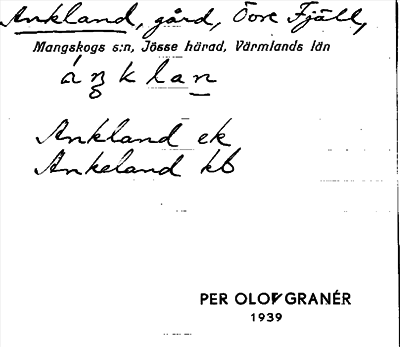 Ankland, gård, Övre Fjäll,
Mangskogs s:n, Jösse härad, Värmlands län
áŋklan
Ankland ek
Ankeland kb
PER OLOF GRANÉR
1939